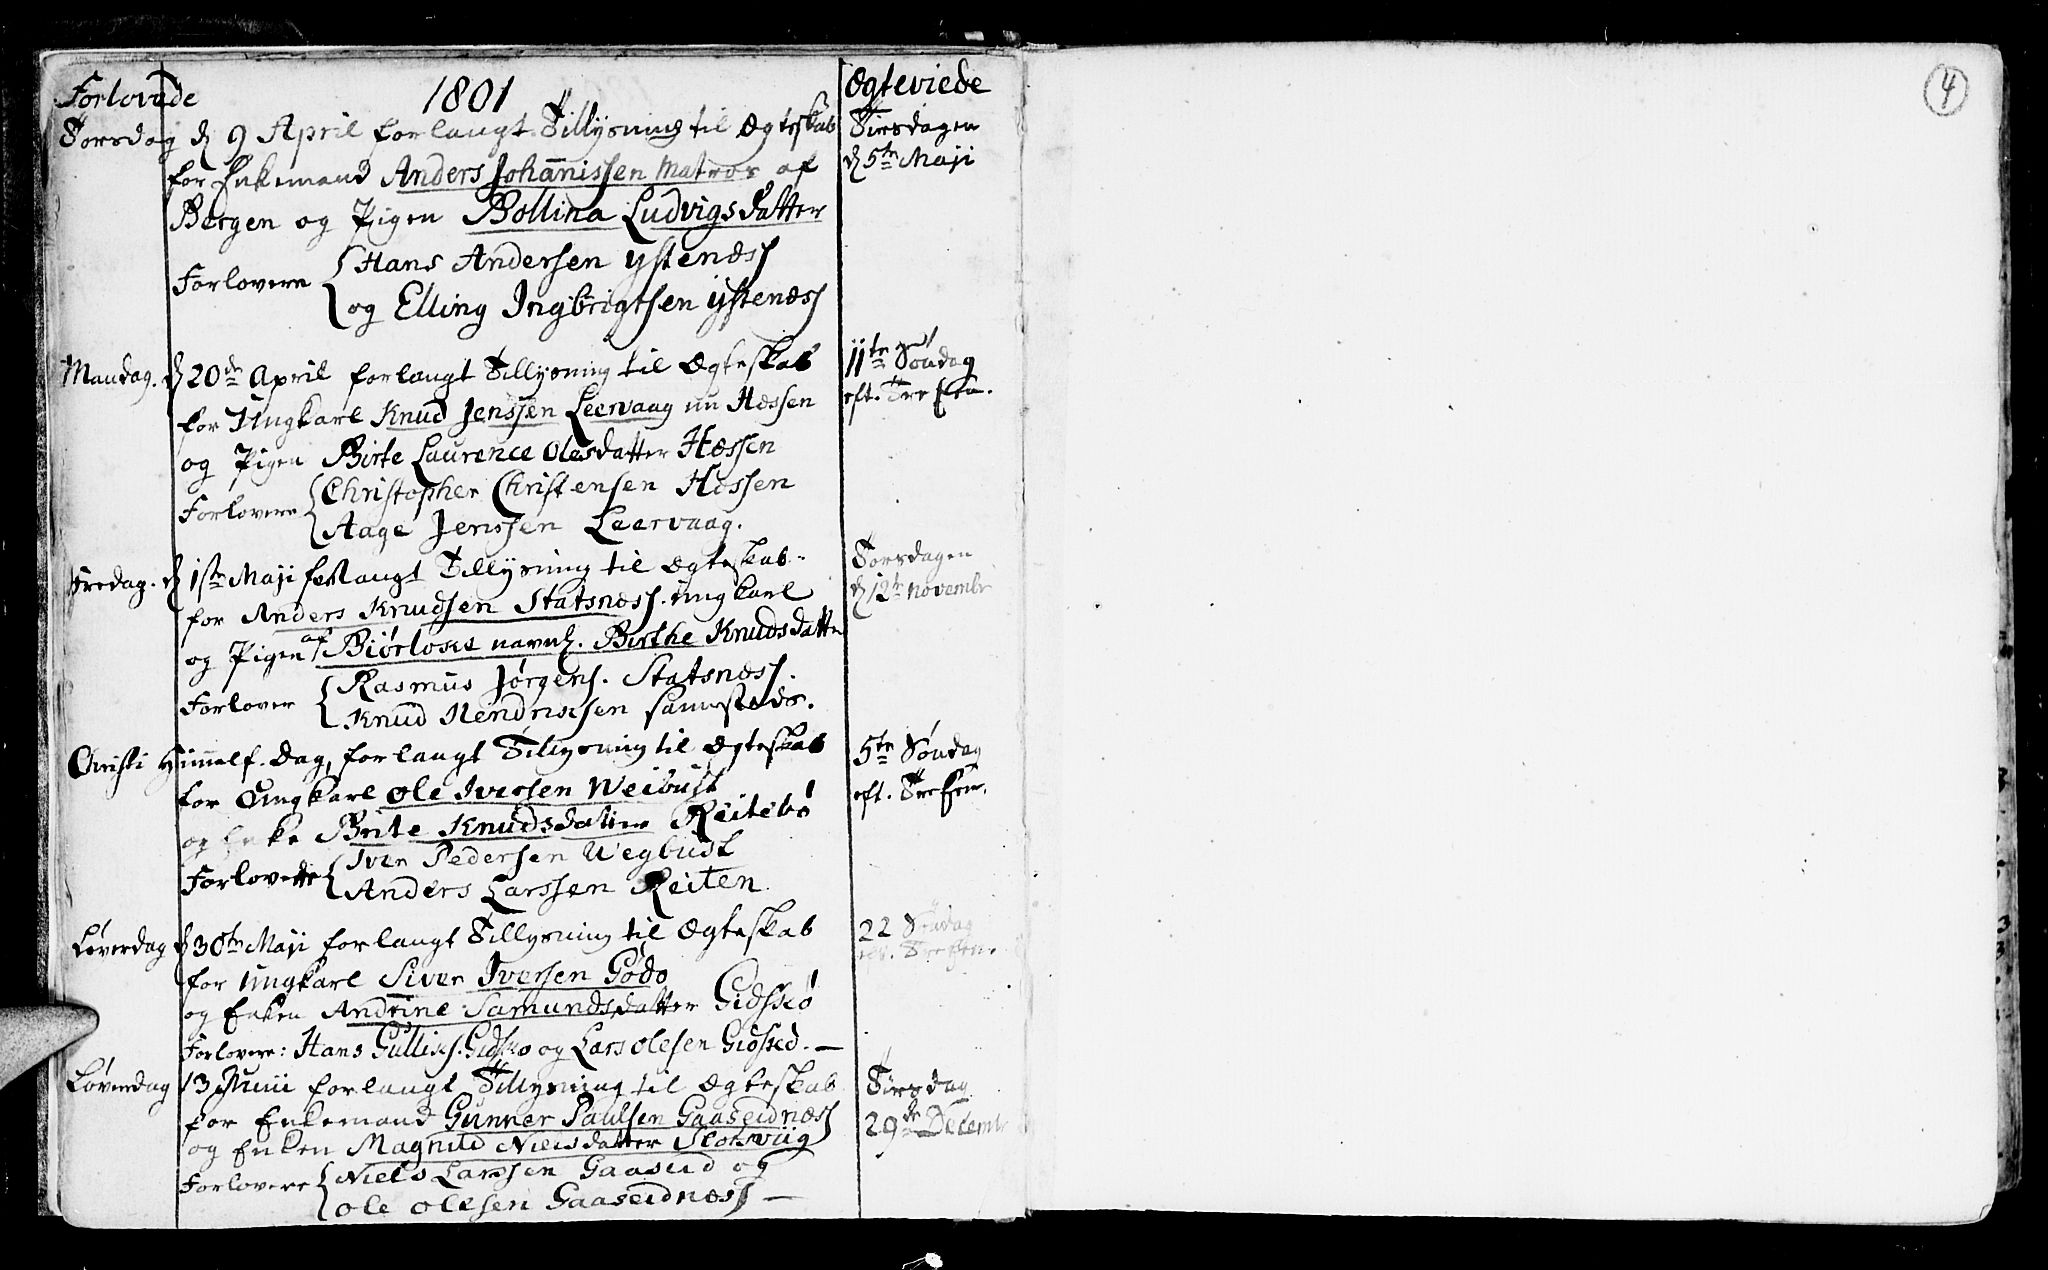 Forlovede 1801 Ægteviede
Torsdag d 9 April forlangt Tillysning til Ægteskab
for Enkemand Anders Johannissen Matros af
Bergen og Pigen Bollina Ludvigsdatter
Forlovere Hans Andersen ystenæss
og Elling Ingbrigtsen ystenæss
Tirsdagen
d 5te Maji
Mandag. d 20de April forlangt Tillysning til Ægteskab
for Ungkarl Knud Jenssen Leervaag nu Hessen
og Pigen Birte Laurence Olesdatter Hessen
Forlovere Christopher Christensen Hessen
Aage Jenssen Leervaag.
11te Søndag
eft. Trefen.
Fredag. d 1ste Maji forlangt Tillysning til Ægteskab
for Anders Knudsen Statsnæss. ungkarl
og Pigen af Biørloxe navnl. Birthe Knudsdatter
Forlover Rasmus Jørgens. Statsnæss.
Knud Hendrixsen sammesteds.
Torsdagen
d 12te novembr
Christi Himmelf. Dag, forlangt Tillysning til Ægteskab
for Ungkarl Ole Iversen Weibust
og Enke Brite Knudsdatter Reitebø
Forlovere Iver Pedersen Wegbust
Anders Larssen Reiten
5te Søndag
eft. Trefen.
Løverdag d 30te Maji forlangt Tillysning til Ægteskab
for Ungkarl Siver Iversen Gödo
og Enken Andrine Samundsdatter Gidskø
Forlovere: Hans Gullixs. Gidsko og Lars Olesen Giøssed. —
22 Søndag
eft. Trefen.
Løverdag 13 Junii forlangt Tillysning til Ægteskab
for Enkemand Gunner Paulsen Gaaseidnæss
og Enken Magnild Nielsdatter Slotsviig
Forlovere Niels Larssen Gaaseid og
Ole Olesen Gaaseidnæss —
Tirsdag
29de Decembr
4